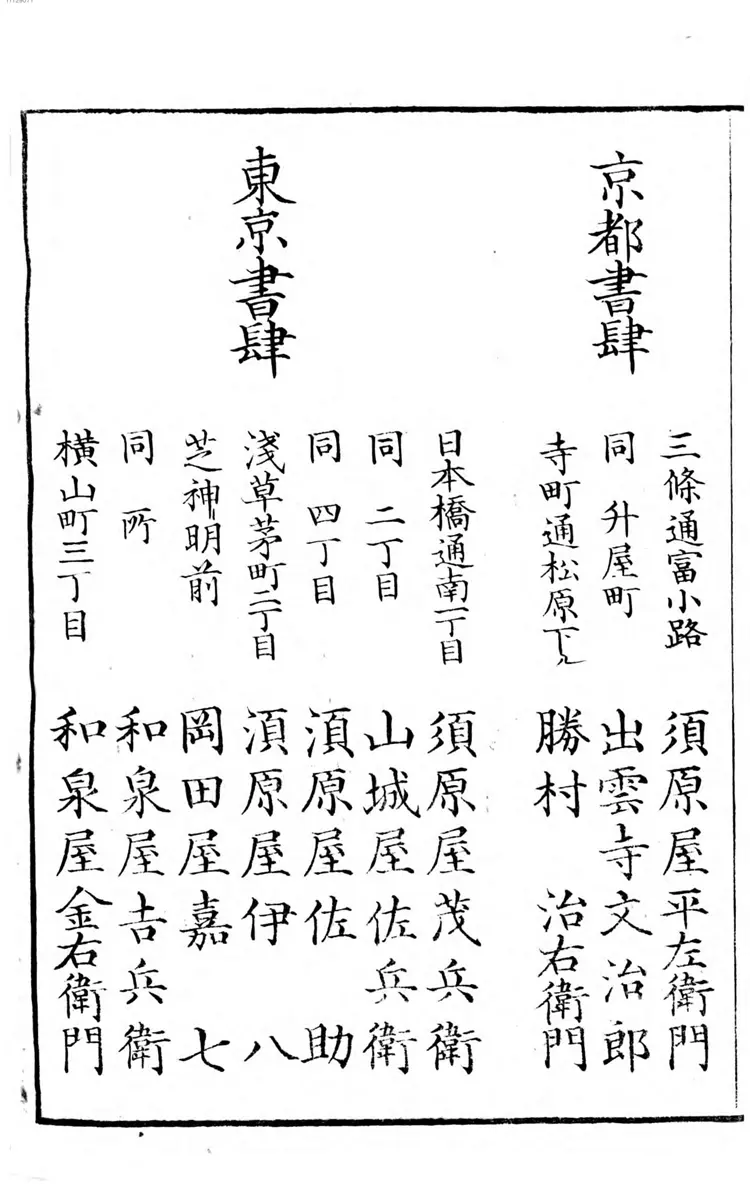 京都書肆
三條通富小路 須原屋平左衛門
同 升屋町 出雲寺文治郎
寺町通松原下ル 勝村治右衛門
東京書肆
日本橋通南一丁目 須原屋茂兵衛
同 二丁目 山城屋佐兵衛
同 四丁目 須原屋佐助
淺草茅町二丁目 須原屋伊八
芝神明前 岡田屋嘉七
同 所 和泉屋吉兵衛
横山町三丁目 和泉屋金右衛門